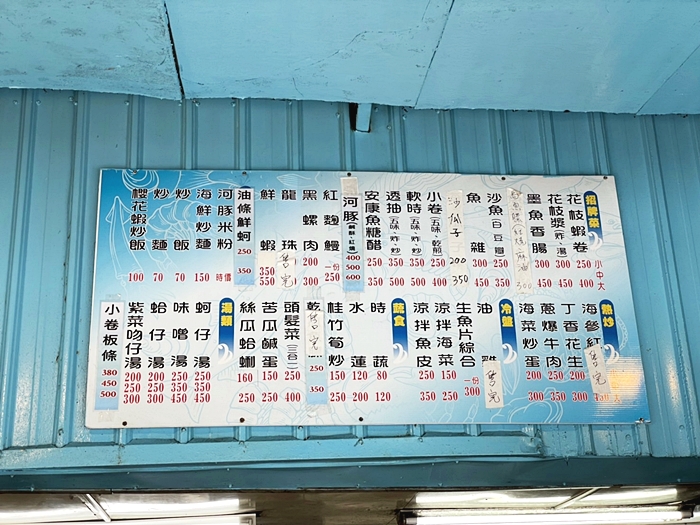 招牌菜
小中大
花枝蝦卷 250 400
花枝漿(炸、湯) 300 400
墨魚香腸 300 450
300
沙魚(白、豆豉) 250 350
魚雜 300 450
沙瓜子 200 350
小卷(五味、乾煎) 300 400
軟時(五味、炸、炒) 350 500
透抽(五味、炸、炒) 350 500
安康魚糖醋 250 350
河豚(鹹酥、紅燒) 400 500 600
紅麴鰻 一份 250
黑螺肉 200 300
龍珠 售完
鮮蝦 350 550
油條鮮蚵 250 350
河豚米粉 時價
海鮮炒麵 150
炒飯 70
炒麵 70
櫻花蝦炒飯 100
熱炒
海參紅 售完
丁香花生 200 300
蔥爆牛肉 250 350
海菜炒蛋 200 300
冷盤
油雞 售完
生魚片綜合 一份 300
涼拌海菜 150 250
涼拌魚皮 250 350
蔬食
時蔬 80 120
水蓮 120 200
桂竹筍炒 150 350
售完 250 350
頭髮菜(三合一) 250 400
苦瓜鹹蛋 150 250
絲瓜蛤蜊 160 250
湯類
蚵仔湯 200 350 450
味噌湯 250 350 450
蛤仔湯 200 250 300
紫菜吻仔湯 200 250 300
小卷板條 380 450 500